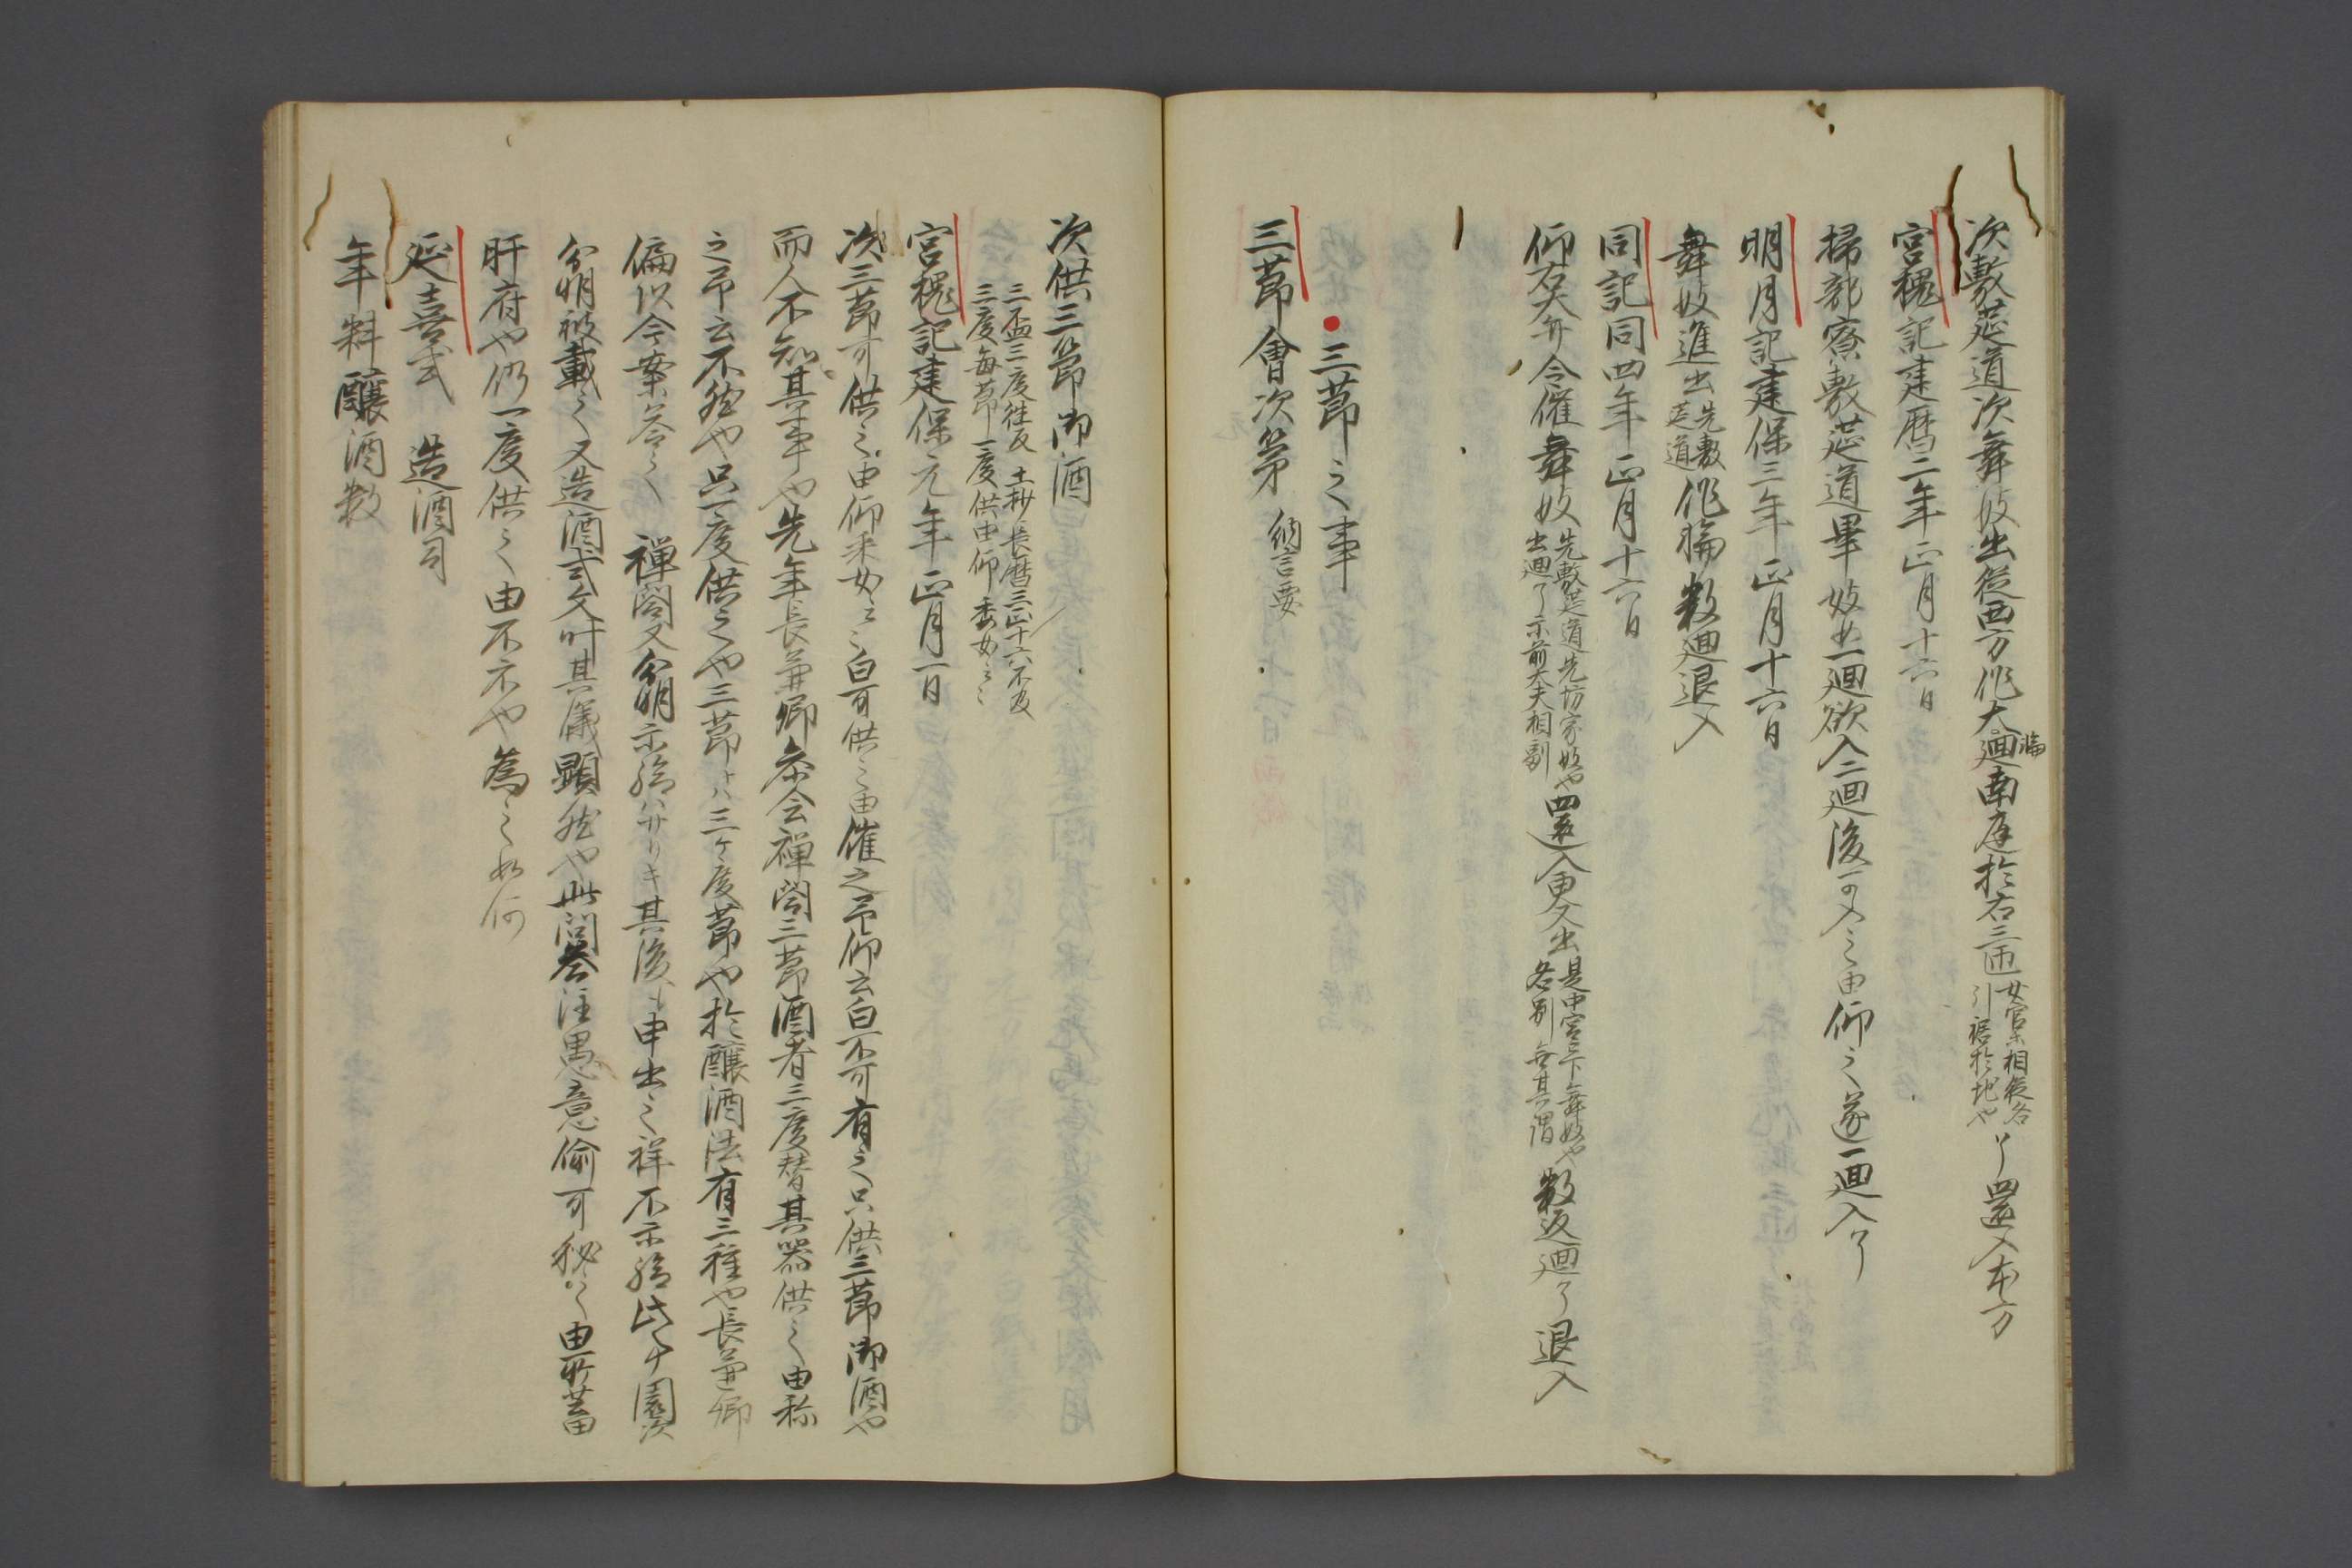 次敷莚道次舞妓出従西方作大輪廻南庭於右三迊女官等相従各引裾於地也了還入本方
宮槐記建暦二年正月十六日
掃部寮敷莚道畢妓女一廻欲入二廻後可入之由仰之遂一廻入了
明月記建保三年正月十六日
舞妓進出先敷莚道作輪数廻退入
同記同四年正月十六日
仰右大弁令催舞妓先敷莚道先坊家妓也出廻了示前大夫相副還入更又出是中宮下舞妓也各別無其謂数返廻了退入
三莭之事
三莭會次第納言要
次供三節御酒
三盃三度往反土抄長暦三正十六不反
三度毎莭一度供由仰采女云々
宮槐記建保元年正月一日
次三莭可供之由仰采女云々白可供之由催之予仰云白不可有之只供三莭御酒也
而人不知其事也先年長兼卿参会禅閤三莭酒者三度替其器供之由称
之予云不然也只一度供之也三莭トハ三ケ度莭也於醸酒法有三種也長兼卿
偏以今案答之禅閤又分明示給ハサリキ其後申出之祥不示給
分明被載之又造酒式文叶其儀顕然也此問答注愚意偷可秘之由
肝府也仍一度供之由不示也為之如何
延喜式 造酒司
年料醸酒数